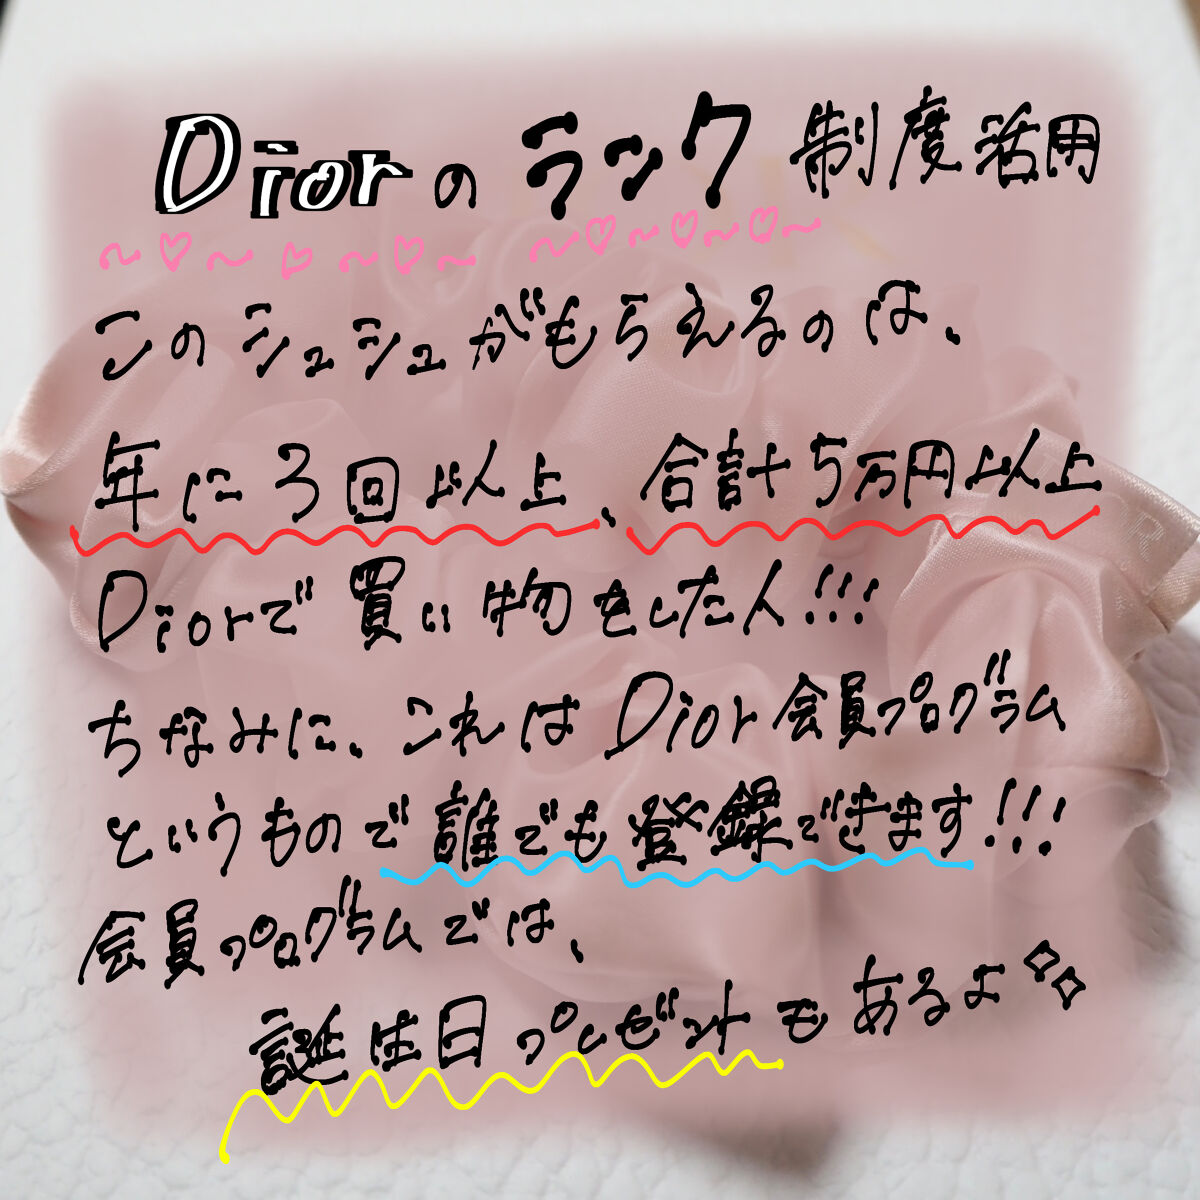 Diorのランク制度活用
このシュシュがもらえるのは、
年に3回以上、合計5万円以上
Diorで買い物をした人!!!
ちなみに、これはDior会員プログラム
というもので誰でも登録できます!!!
会員プログラムでは、
誕生日プレゼントもあるよ